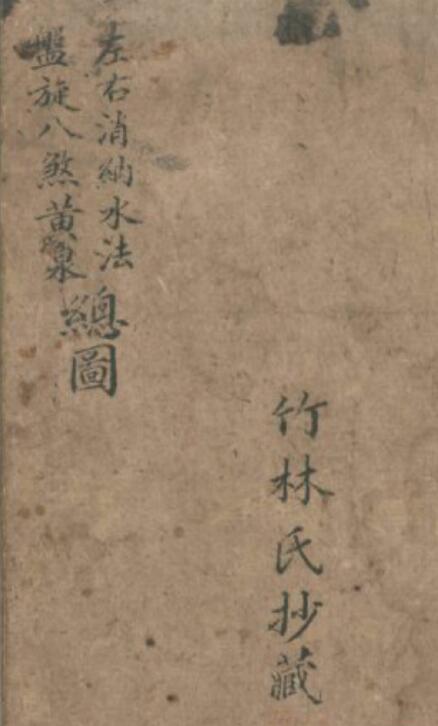 左右消納水法
盤旋八煞黃泉
總圖
竹林氏抄藏